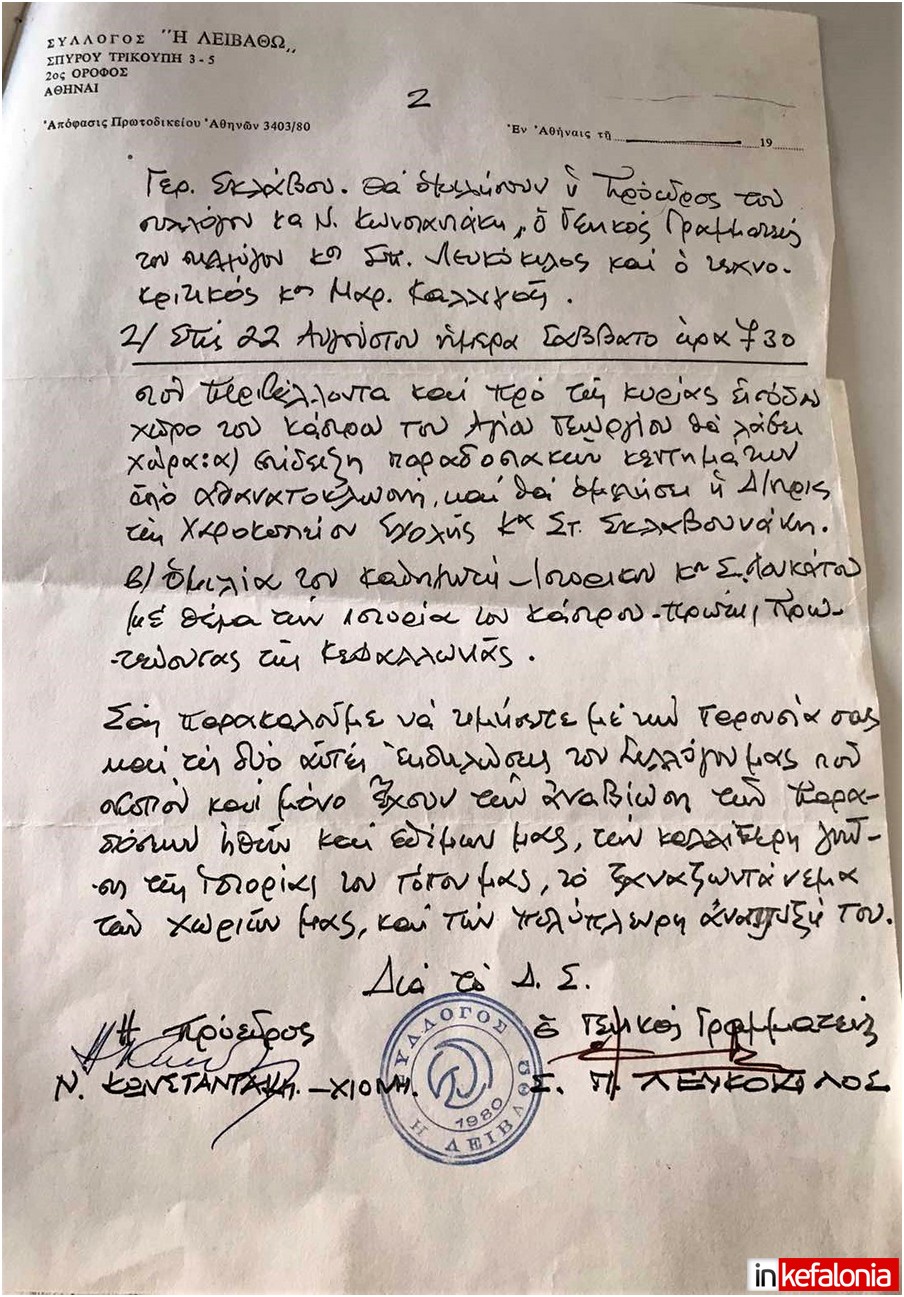 ΣΥΛΛΟΓΟΣ "Η ΛΕΙΒΑΘΩ,,
ΣΠΥΡΟΥ ΤΡΙΚΟΥΠΗ 3 - 5
2ος ΟΡΟΦΟΣ
ΑΘΗΝΑΙ
2
Ἀπόφασις Πρωτοδικείου Ἀθηνῶν 3403/80
Ἐν Ἀθήναις τῇ 19
Γερ. Σκλάβου. Θά ὁμιλήσουν ἡ Πρόεδρος του
συλλόγου κα Ν. Κωνσταντάκη, ὁ Γενικός Γραμματεύς
του συλλόγου κος Σπ. Λευκόκιλος και ὁ τεχνο-
κριτικός κος Μαρ. Καλλιγᾶς.
2/ Στίς 22 Αυγούστου ἡμερα Σαββατο ὡρα 7 30
στον περιβάλλοντα και πρό τῆς κυρίας εἰσόδου
χωρο του κάστρου του Αγίου Γεωργίου θά λάβει
χώρα: α) ἐπίδειξη παραδοσιακών κεντημάτων
ἀπό αθανατοκλωνή, και θά ὁμιλήσει ἡ Δ/ντρις
τῆς Χαροκοπείου Σχολῆς κα Στ. Σκλαβουνάκη.
β) ὁμιλία του καθηγητή - Ιστορικου κου Σ. Λουκάτου
μέ θέμα την ιστορία του κάστρου - πρώτης πρω-
-τεύουσας τῆς Κεφαλλωνιᾶς.
Σας παρακαλοῦμε νά τιμήσετε μέ την παρουσία σας
και τις δύο αὐτές ἐκδηλώσεις του Συλλόγου μας που
σκοπόν και μόνο ἔχουν τῆν ἀναβίωση τῶν παρα-
δόσεων ἠθῶν και εθίμων μας, την καλλίτερη γνώ-
-ση τῆς ἱστορίας του τόπου μας, τό ξαναζωντάνεμα
των χωριῶν μας, και την πολύπλευρη ἀνάπτυξή του.
Διά το Δ. Σ.
Ἡ πρόεδρος
ὁ Γενικός Γραμματεύς
Ν. ΚΩΝΣΤΑΝΤΑΚΗ - ΧΙΟΝΗ.
Σ. Π. ΛΕΥΚΟΚΙΛΟΣ
ΣΥΛΛΟΓΟΣ
Η ΛΕΙΒΑΘΩ
1980
inkefalonia